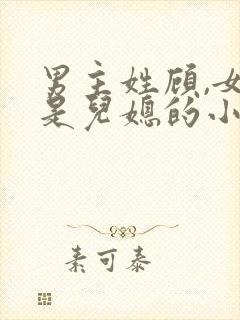 男主姓顾,女
是兒媳的小
素可泰